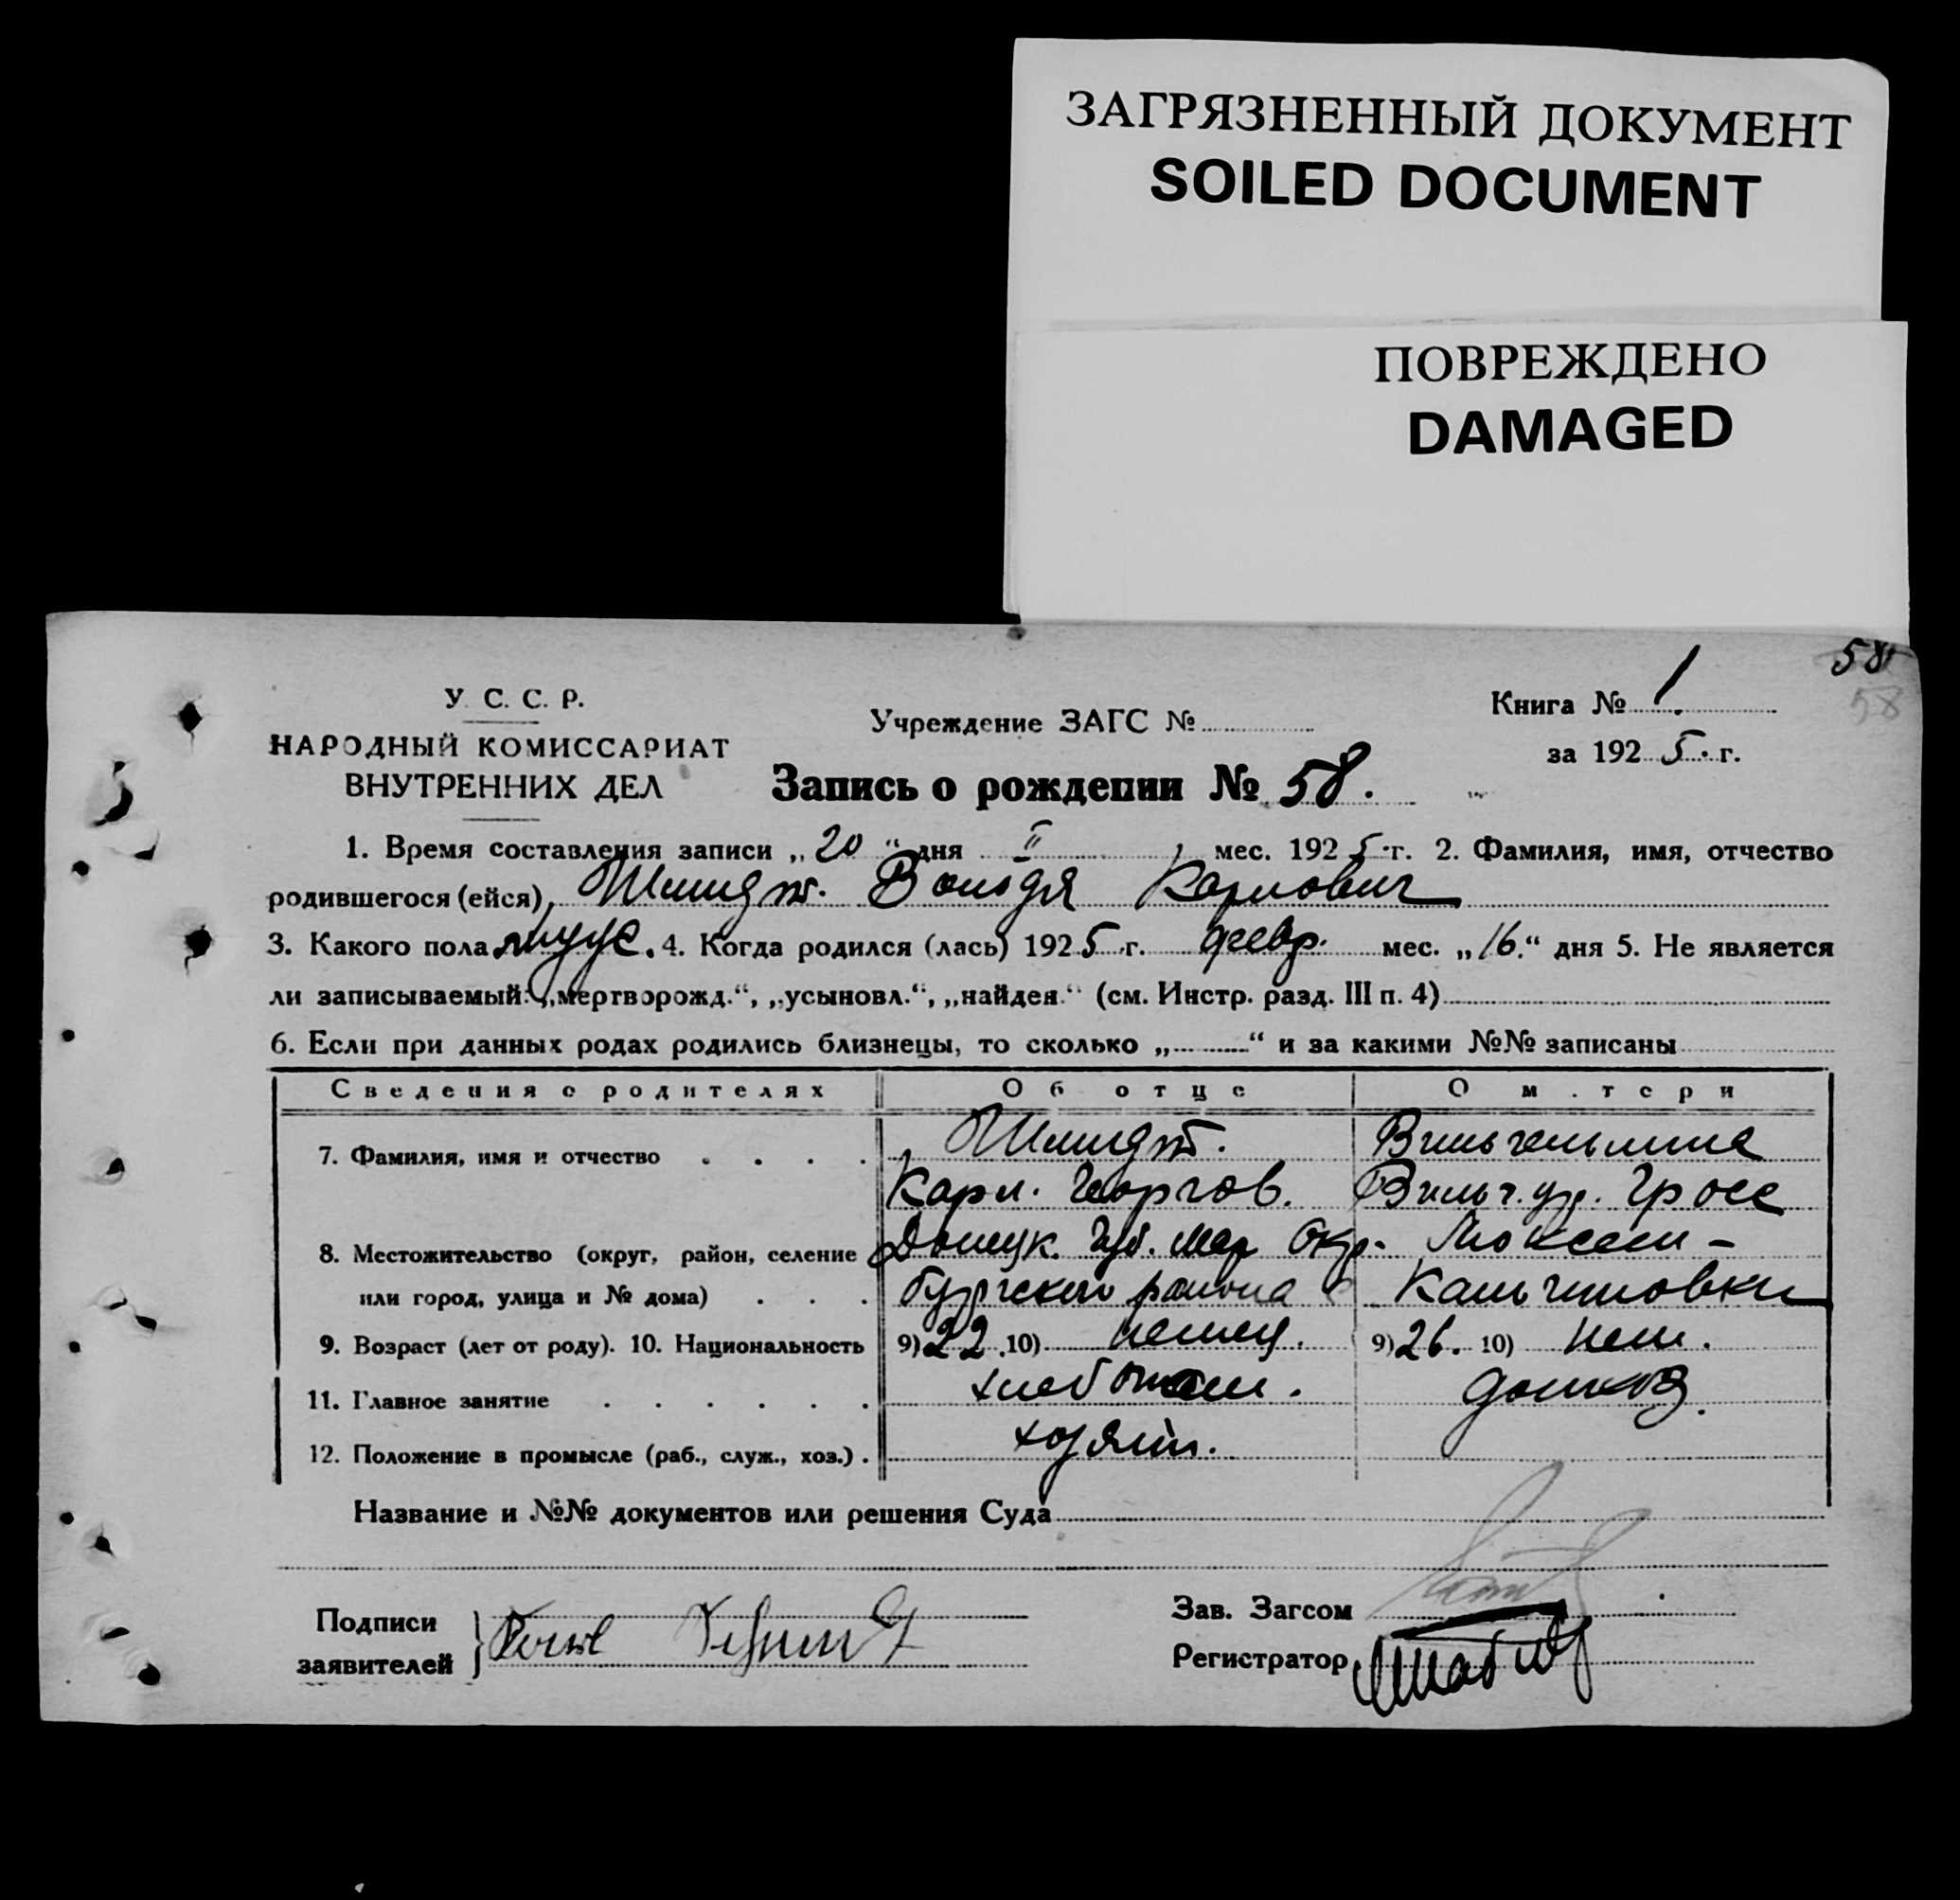 ЗАГРЯЗНЕННЫЙ ДОКУМЕНТ
SOILED DOCUMENT
ПОВРЕЖДЕНО
DAMAGED
58
58
У. С. С. Р.
НАРОДНЫЙ КОМИССАРИАТ
ВНУТРЕННИХ ДЕЛ
Учреждение ЗАГС №
Книга № 1
за 1925 г.
Запись о рождении № 58.
1. Время составления записи „20“ дня II мес. 1925 г. 2. Фамилия, имя, отчество
родившегося (ейся) Шмидт. Володя Карлович
3. Какого пола муж. 4. Когда родился (лась) 1925 г. февр. мес. „16.“ дня 5. Не является
ли записываемый: „мертворожд.“, „усыновл.“, „найден.“ (см. Инстр. разд. III п. 4)
6. Если при данных родах родились близнецы, то сколько „ “ и за какими №№ записаны
Сведения о родителях Об отце О м.тери
7. Фамилия, имя и отчество Шмидт. Вильгельмина
Карл. Георгов. Вильг. ур. Гросс
8. Местожительство (округ, район, селение Донецк. Губ. Мар Окр. Люксем-
или город, улица и № дома) бургского района с Кальчиновки
9. Возраст (лет от роду). 10. Национальность 9) 22 10) немец. 9) 26. 10) нем.
11. Главное занятие хлебопаш. домхоз.
12. Положение в промысле (раб., служ., хоз.) хозяин.
Название и №№ документов или решения Суда
Подписи
заявителей } Karl Schmidt
Зав. Загсом
Регистратор